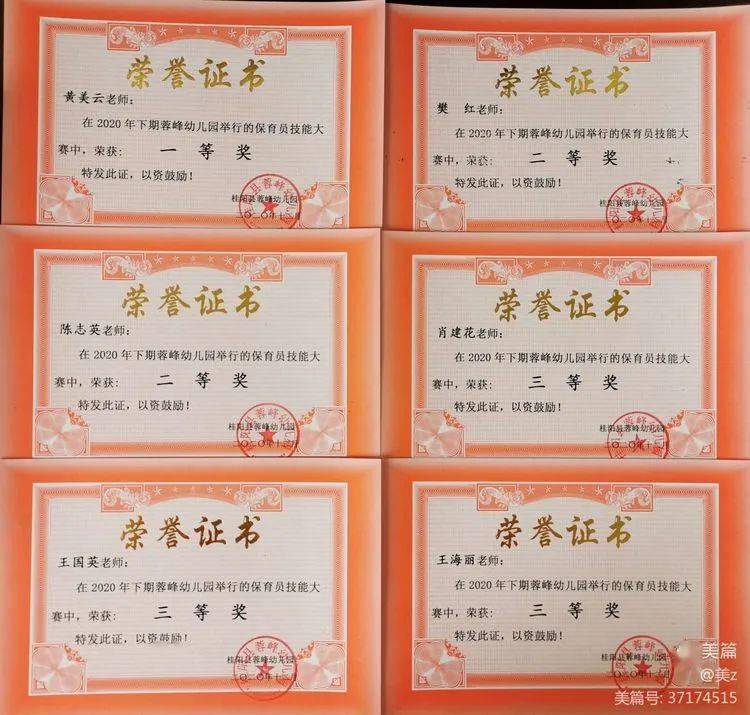 荣誉证书
黄美云老师：
在2020年下期蓉峰幼儿园举行的保育员技能大
赛中，荣获： 一等奖
特发此证，以资鼓励！
桂阳县蓉峰幼儿园
荣誉证书
樊 红老师：
在2020年下期蓉峰幼儿园举行的保育员技能大
赛中，荣获： 二等奖
特发此证，以资鼓励！
桂阳县蓉峰幼儿园
荣誉证书
陈志英老师：
在2020年下期蓉峰幼儿园举行的保育员技能大
赛中，荣获： 二等奖
特发此证，以资鼓励！
桂阳县蓉峰幼儿园
荣誉证书
肖建花老师：
在2020年下期蓉峰幼儿园举行的保育员技能大
赛中，荣获： 三等奖
特发此证，以资鼓励！
桂阳县蓉峰幼儿园
荣誉证书
王国英老师：
在2020年下期蓉峰幼儿园举行的保育员技能大
赛中，荣获： 三等奖
特发此证，以资鼓励！
桂阳县蓉峰幼儿园
荣誉证书
王海丽老师：
在2020年下期蓉峰幼儿园举行的保育员技能大
赛中，荣获： 三等奖
特发此证，以资鼓励！
桂阳县蓉峰幼儿园
美篇
@美z
美篇号: 37174515